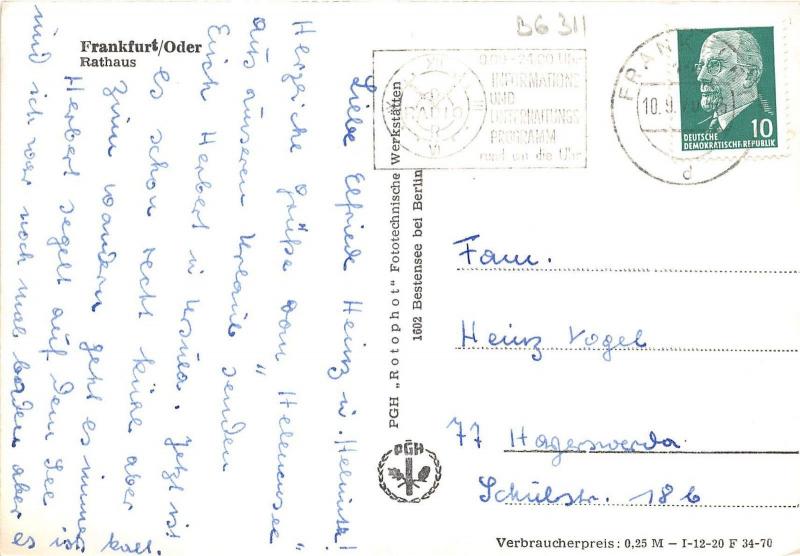 B6 311
Frankfurt/Oder
Rathaus
0.00-24.00 Uhr
INFORMATIONS
UND
UNTERHALTUNGS
PROGRAMM
rund um die Uhr
RADIO
FRANKFU
10.9.70
d
10
DEUTSCHE
DEMOKRATISCHE REPUBLIK
Liebe Elfriede Heinz u. Helmuth!
Herzliche Grüße vom „Helenesee"
aus unseren Urlaub senden
Euch Herbert u Ursula. Jetzt ist
es schon recht kühl aber
zum wandern geht es immer
Herbert segelt auf dem See
und ich war noch mal baden aber es
ist kalt.
PGH „Rotophot" Fototechnische Werkstätten
1602 Bestensee bei Berlin
PGH
Fam.
Heinz Vogel
77 Hoyerswerda
Schulstr. 18b
Verbraucherpreis: 0,25 M – I-12-20 F 34-70